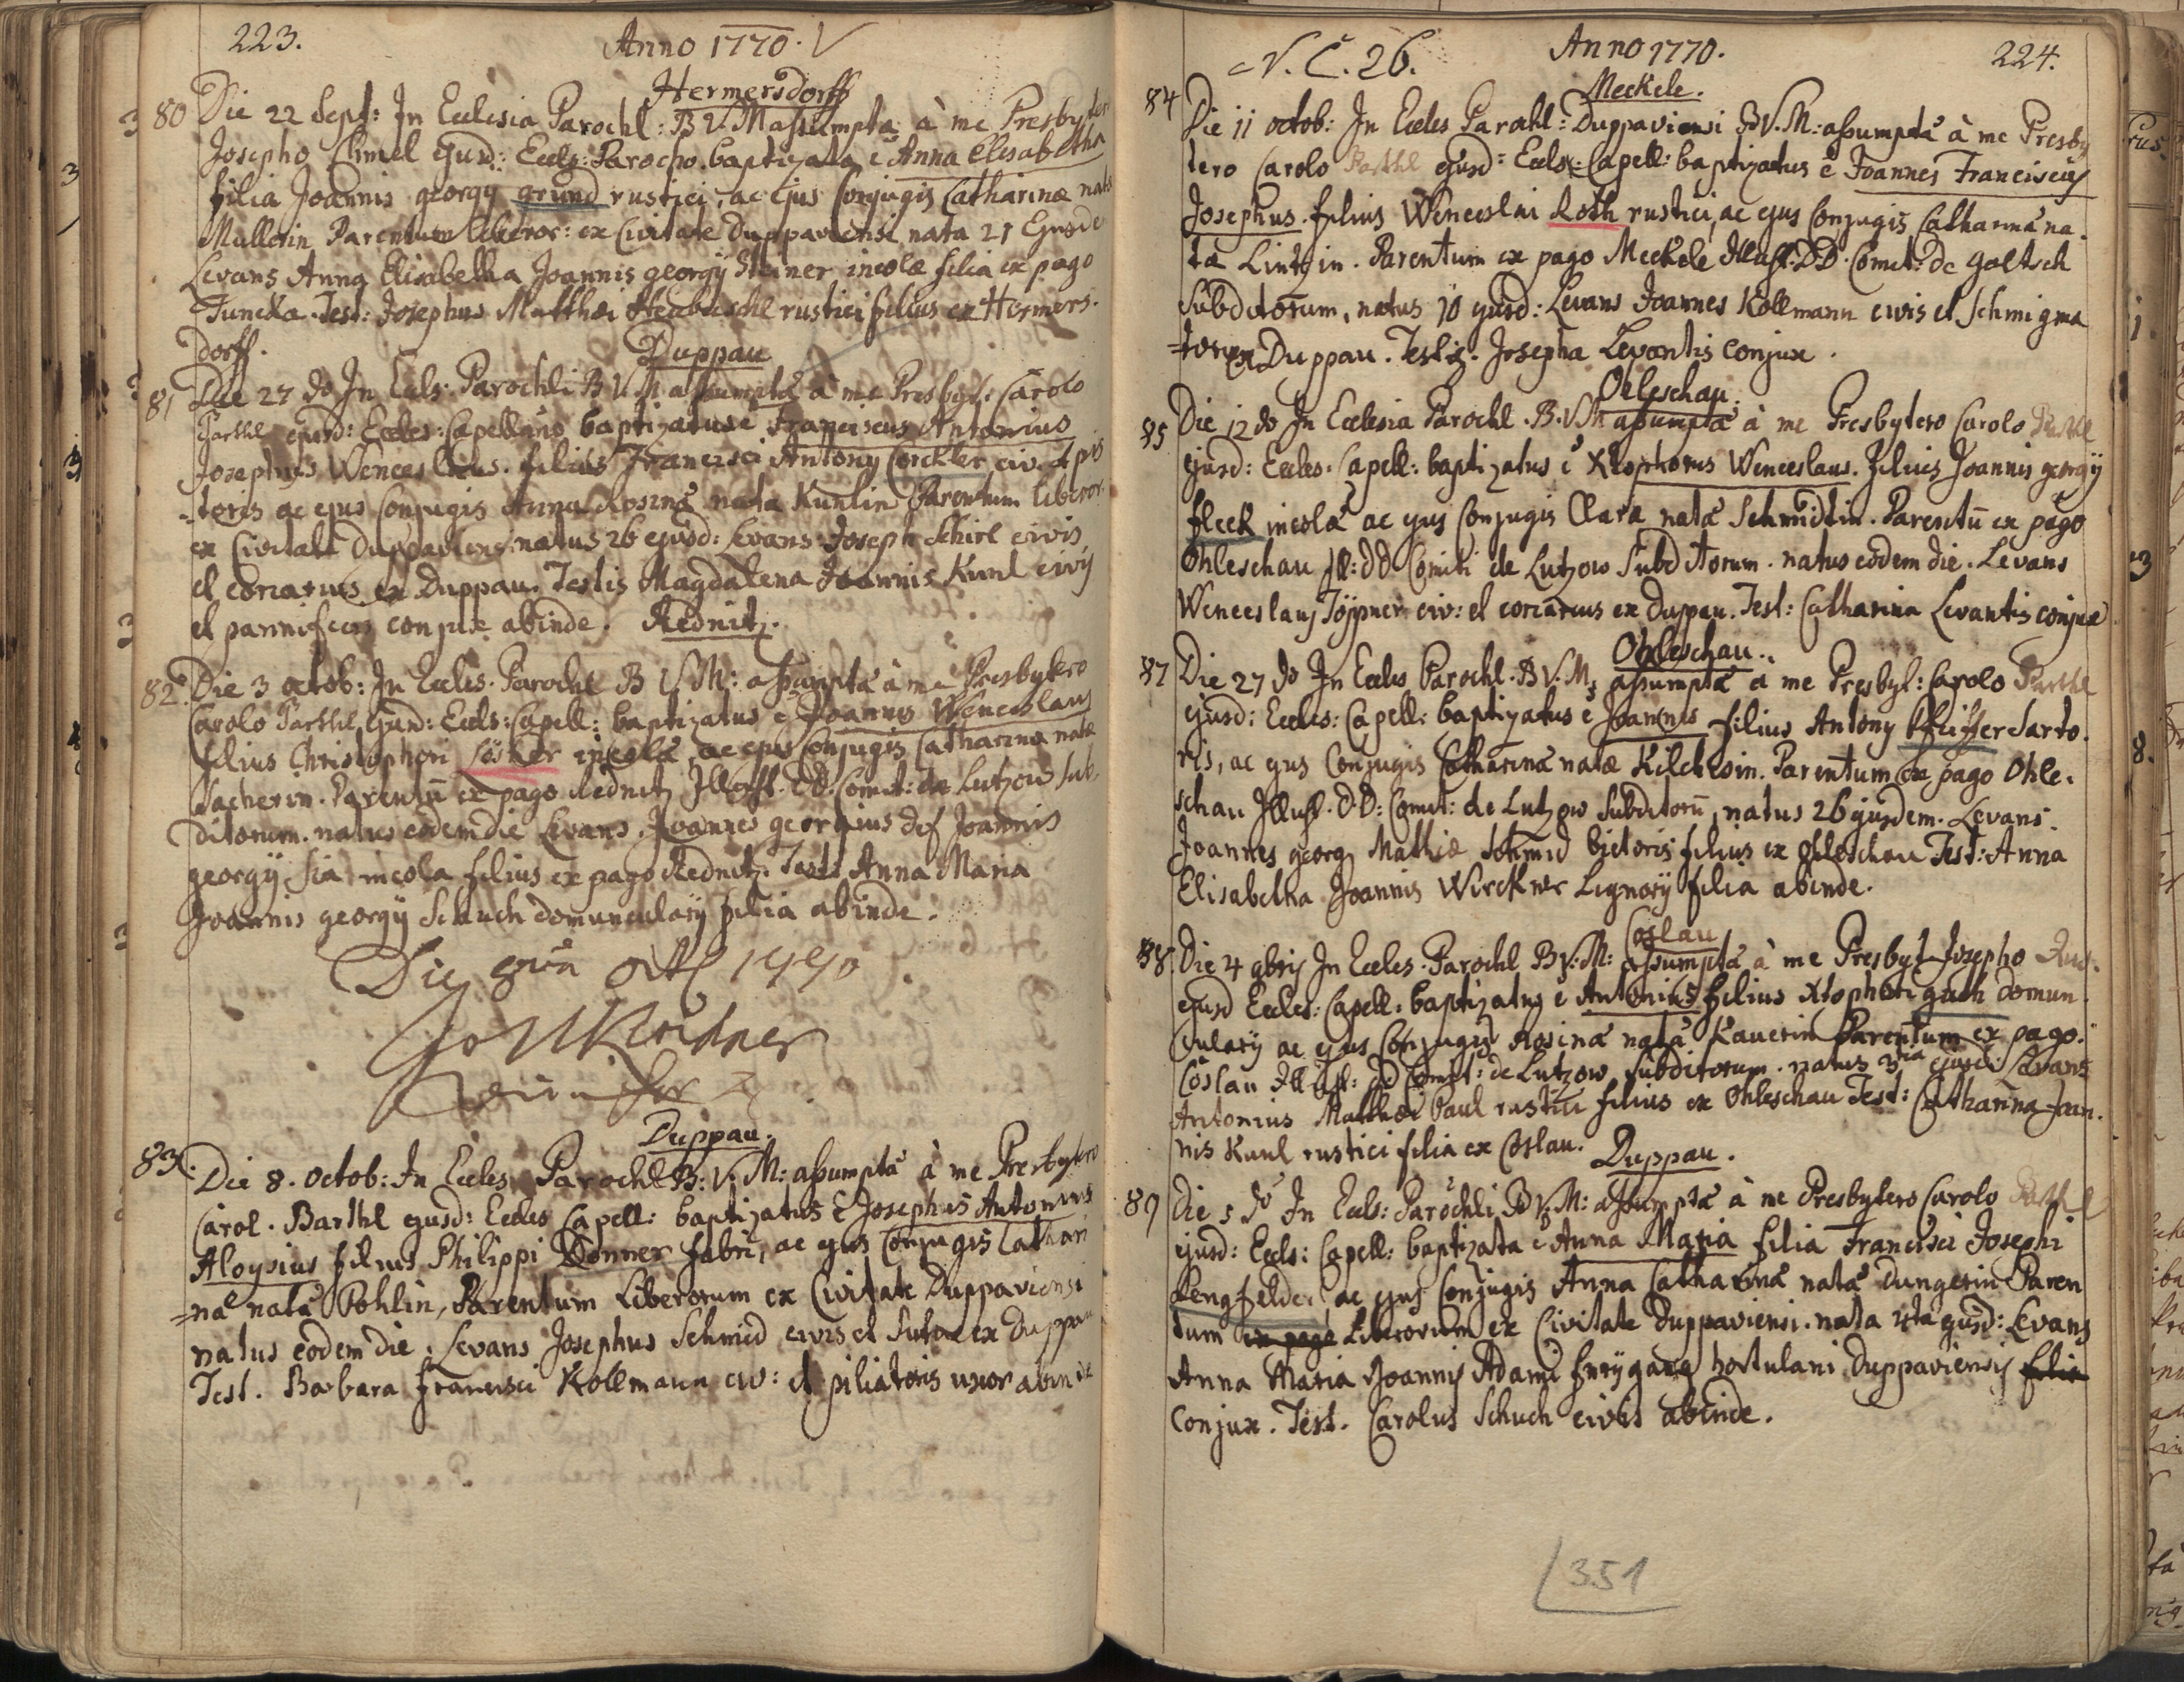 223.
Anno 1770.
Hermersdorff
80 Die 22 Sept: In Ecclesia Parochl: B V. M assumpta à me Presbyter
Josepho Chmel ejusd: Eccls: Parocho baptizata e Anna Elisabetha
filia Joannis georgÿ grund rustici, ac ejus Conjugis Catharinæ nata
Mullerin Parentum ex Civitate Duppaviensi nata 21 Ejusde
Levans Anna Elisabetha Joannis georgÿ Steiner incolæ filia ex pago
Tuncka. Test: Josephus Matthæi rustici filius ex Hermers-
dorff.
Duppau
81 Die 27 do In Ecls. Parochli B V. M assumpta à me Presbyt: Carolo
Parthl ejusd: Eccles: Capellano baptizatus e Franciscus Antonius
Josephus Wenceslaus. filius Francisci Antony civ. et pis
=toris ac ejus Conjugis Anna Rosina nata Kunlin Parentum liberor.
ex Civitate Duppaviens. natus 26 ejusd: Levans Joseph Schirl civis
et coriarius ex Duppau. Testis Magdalena Joannis Kunl civÿ
et pannificis conjux abinde. Rednitz.
82. Die 3 octob: In Eccles. Parochl B V. M: assumpta à me Presbytero
Carolo Parthl Ejusd: Eccls: Capell: baptizatus e Joannes Wenceslaus
filius Christophori Lösker incola, ac ejus Conjugis Catharina nata
Sacherin. Parentū ex pago Rednitz Illust. DD. Comit: de Lutzow sub-
ditorum. natus eodem die Levans. Joannes georgius def Joannis
georgÿ Sia incola filius ex pago Rednitz. Test: Anna Maria
Joannis georgÿ Schuch domuncularÿ filia abinde.
Die 8va 1770
Duppau.
83. Die 8. octob: In Eccles Parochl B: V. M: assumpta à me Presbytero
Carol. Barthl ejusd: Eccles Capell: baptizatus e Josephus Antonius
Aloysius filius Philippi Donner fabri, ac ejus Conjugis Cathari
=na nata Pohlin, Parentum Liberorum ex Civitate Duppaviensi
natus eodem die. Levans Josephus Schmid civis et Sutor ex Duppau
Test. Barbara Francisci Kollmann civ: et piliatoris uxor abinde
N. C. 26.
Anno 1770.
224.
Meckele.
84 Die 11 octob: In Eccles Parochl: Duppaviensi B V. M: assumpta à me Presby
tero Carolo Parthl ejusd: Eccls: Capell: baptizatus e Joannes Franciscus
Josephus. filius Wenceslai Roth rustici, ac ejus Conjugis Catharina na-
ta Lintzin. Parentum ex pago Meckele Illust. DD. Comit: de Goltsch
Subditorum, natus 10 ejusd: Levans Joannes Kollmann civis et Schmigma
=tor ex Duppau. Testis. Josepha Levantis conjux.
Ohleschau.
85 Die 12 do In Ecclesia Parochl. B. V. M assumpta à me Presbytero Carolo Parthl
ejusd: Eccles. Capell: baptizatus e Xtophorus Wenceslaus. filius Joannis georgÿ
fleck incola ac ejus Conjugis Clara nata Schmidtin. Parentū ex pago
Ohleschau Ill: DD Comiti de Lutzow Subditorum. natus eodem die. Levans
Wenceslaus Töppner civ: et coriarius ex Duppau. Test: Catharina Levantis conjux
Ohleschau.
87 Die 27 do In Eccles Parochl. B V. M, assumpta a me Presbyt: Carolo Parthl
ejusd: Eccles: Capell: baptizatus e Joannes filius Antony Pfeiffer Sarto-
ris, ac ejus Conjugis Catharina natæ Kilchsin. Parentum ex pago Ohle-
schau Illust. D. D: Comit: de Lutzow Subditorū, natus 26 ejusdem. Levans.
Joannes georg Mathiæ Schmid bietoris filius ex Ohleschau Test: Anna
Elisabetha Joannis Wirckner Lignarÿ filia abinde.
Coslau
88. Die 4 9bris In Eccles. Parochl B V. M: assumpta à me Presbyt Josepho
ejusd Eccles: Capell: baptizatus e Antonius filius Xtophori guth domun-
cularÿ ac ejus Conjugis Rosina nata Kauerin Parentum ex pago.
Coslau Illust: DD Comit: de Lutzow subditorum. natus 3tia ejusd: Levans
Antonius Matthæi Paul rustici filius ex Ohleschau Test: Catharina Joan-
nis Kunl rustici filia ex Coslau. Duppau.
89 Die 5 do In Eccls: Parochli B V. M: assumpta à me Presbytero Carolo Parthl
ejusd: Eccls: Capell: baptizata e Anna Maria filia Francisci Josephi
Lengfelder ac ejus Conjugis Anna Catharina nata Dungerin Paren
tum ex pago Liberorum ex Civitate Duppaviensi. nata 4ta ejusd: Levans
Anna Maria Joannis Adami freÿgang hortulani Duppaviensis filia
Conjux. Test. Carolus Schuch civis abinde.
351